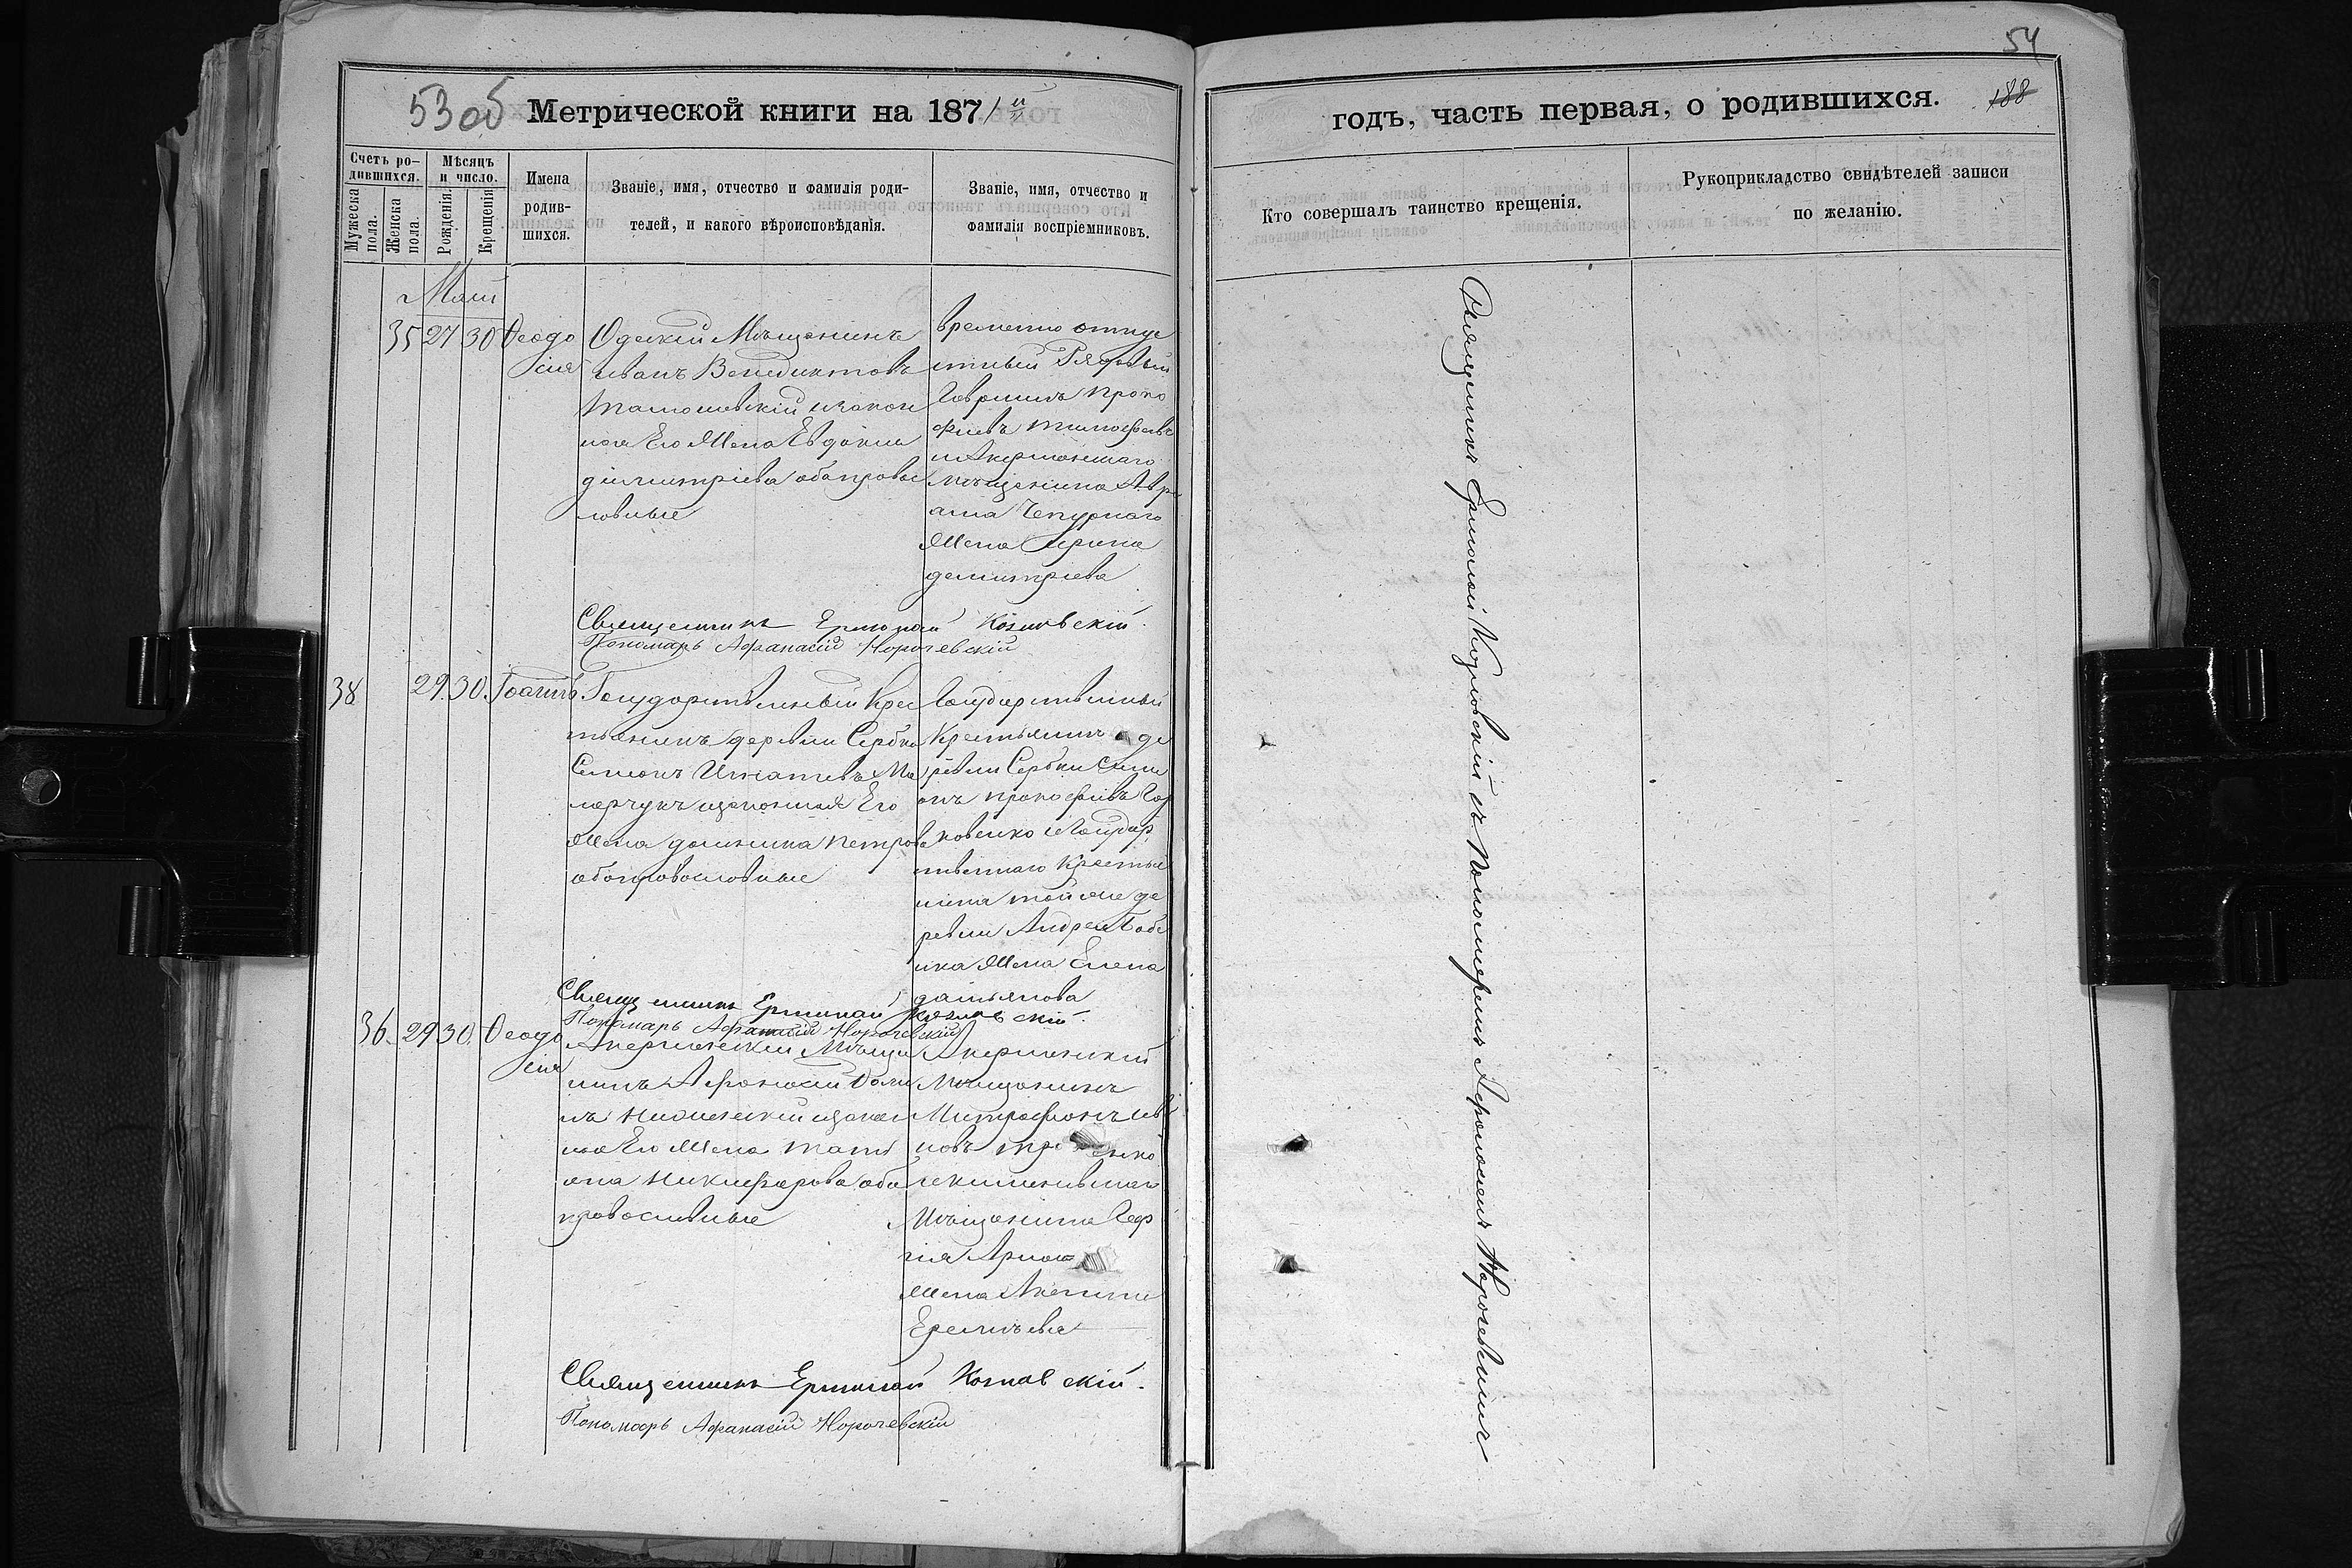 53 об Метрической книги на 1871й
Счетъ ро-
дившихся.
Мѣсяцъ
и число.
Мужеска
пола.
Женска
пола.
Рожденія.
Крещенія.
Имена
родив-
шихся.
Званіе, имя, отчество и фамилія роди-
телей, и какого вѣроисповѣданія.
Званіе, имя, отчество и
фамилія воспріемниковъ.
Маій
35 27 30 Ѳеодо
сія
Одескій Мѣщанинъ
Иванъ Венедиктовъ
изакон
ная Его Жена Евдокия
димитріева обаправос
лавные
временно отпус
тный Рядовый
Гавриилъ проко
фиевъ тимофеевъ
иАкерманскаго
мѣщанина Авра
ама Чепурнаго
Жена Ирина
демитріева
Священникъ Ермолай Козловскій
Пономарь Афанасій Норочевскій
38 29. 30. Іоаннъ.
Государственный Крес
тьянинъ деревни Сербки
Симионъ Игнатиевъ Ма
ларчукъ изаконная Его
Жена домникия петрова
обоправославные
Государственный
Крестьянинъ де
ревни Сербки Сими
онъ прокофиевъ
иГосудар
ственнаго Крестья
нина тойже де
ревни Андрея
Жена Елена
дамьянова
Священникъ Ермолай Козловскій.
Пономарь Афанасій Норочевскій
36. 29 30. Ѳеодо
сия
Акерманский Мѣща
нинъ Афанасий Ѳоми
нъ изакон
ная Его Жена Тати
яна Никифорова оба
православные
Акерманский
Мѣщанинъ
Митрофанъ Ива
новъ
Мѣщанина Геор
гия
Жена
Еремѣева
Священникъ Ермолай Козловскій.
Пономарь Афанасій Норочевскій
54
годъ, часть первая, о родившихся. 188
Кто совершалъ таинство крещенія.
Рукоприкладство свидѣтелей записи
по желанію.
Священникъ Ермолай Козловский съ Пономаремъ Афанасиемъ Норочевскимъ